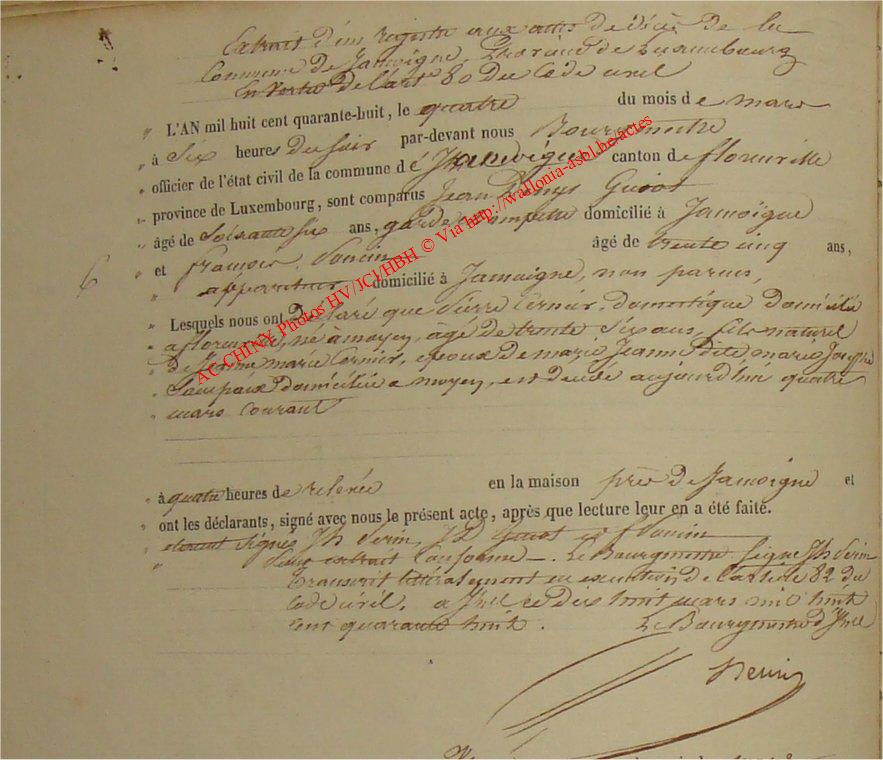 Extrait d'un registre aux actes de décès de la
Commune de Jamoigne, Province de Luxembourg
en vertu de l'art 80 du Code civil
L'AN mil huit cent quarante-huit, le quatre du mois de mars
à six heures du soir par-devant nous Bourgmestre
officier de l'état civil de la commune de Jamoigne canton de florenville
province de Luxembourg, sont comparus Jean Denys Guiot
âgé de soixante six ans, garde champetre domicilié à Jamoigne
6 et françois âgé de trente cinq ans,
appariteur domicilié à Jamoigne, non parens,
Lesquels nous ont déclaré que Pierre Cornier, domestique domicilié
a florenville, né à moyen, agé de trente six ans, fils naturel
de Jeanne marie Cornier, epoux de marie Jeanne dite marie Josephe
domiciliée a moyen, est décédé aujourd'hui quatre
mars courant
à quatre heures de relevée en la maison près de Jamoigne et
ont les déclarants, signé avec nous le présent acte, après que lecture leur en a été faite.
etoient signés Jh Perin, J D Guiot et f
Pour extrait conforme. Le Bourgmestre signé Jh Perin
Transcrit littéralement en execution de l'article 82 du
Code civil. a ce dix huit mars mil huit
cent quarante huit. Le Bourgmestre
AC CHINY Photos HV/JCI/HBH © Via http://wallonia-asbl.be/actes